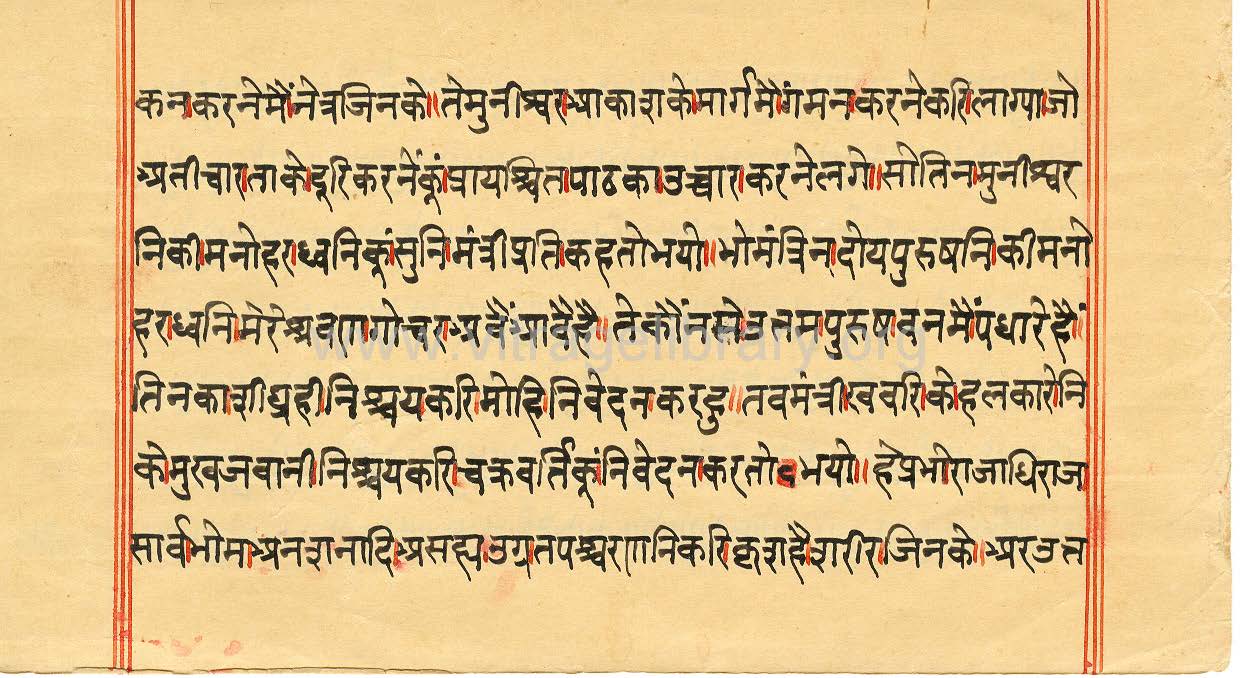 कन।करनेमैं।नेत्रजिनके॥तेमुनीश्वर।आकाशके।मार्गमैं।गमन।करनेकरि।लाग्या।जो
अतीचार।ताके।दूरिकरनेंकूं।प्रायश्चित।पाठका।उच्चार।करनेलगे॥सोतिन।मुनीश्वर
निकी।मनोहर।ध्वनिकूं।सुनि।मंत्रीप्रति।कहतोभयो॥भोमंत्रिन्।दोयपुरुषनिकीमनो
हर।ध्वनि।मेरेश्रवणगोचर।अवैं।आवैहै॥तेकौंन।सेउत्तमपुरुष।वनमैंपधारेहैं॥
तिनका।शीघ्रही।निश्चयकरि।मोहि।निवेदनकरहु॥तवमंत्री।खवरि।के।हलकारेनि
के।मुखजवानी।निश्चयकरि।चक्रवर्तिकूं।निवेदन।करतोभयो॥हेप्रभो।राजाधिराज
सार्वभोम।अनशनादि।असह्य।उग्रतपश्चरणनिकरि।कृशहै।शरीर।जिनके॥अरउत्त
www.vitragelibrary.org